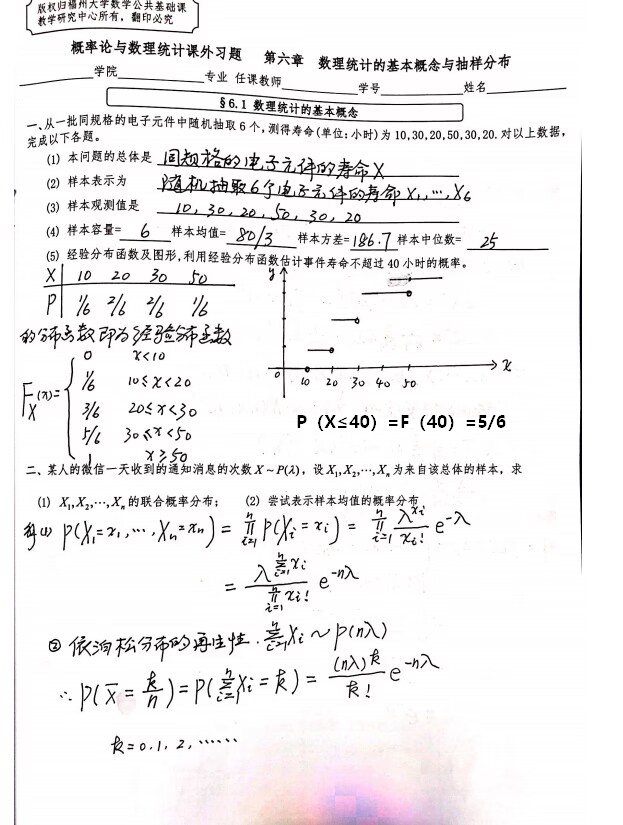 版权归福州大学数学公共基础课
教学研究中心所有，翻印必究
概率论与数理统计课外习题 第六章 数理统计的基本概念与抽样分布
学院 专业 任课教师 学号 姓名
§6.1 数理统计的基本概念
一、从一批同规格的电子元件中随机抽取6个，测得寿命(单位：小时)为10,30,20,50,30,20.对以上数据，
完成以下各题。
(1) 本问题的总体是 同规格的电子元件的寿命X
(2) 样本表示为 随机抽取6个电子元件的寿命X₁,…,X₆
(3) 样本观测值是 10, 30, 20, 50, 30, 20
(4) 样本容量= 6 样本均值= 80/3 样本方差= 186.7 样本中位数= 25
(5) 经验分布函数及图形，利用经验分布函数估计事件寿命不超过40小时的概率。
X 10 20 30 50
P 1/6 2/6 2/6 1/6
的分布函数即为经验分布函数
F_X(x)=
0 x<10
1/6 10≤x<20
3/6 20≤x<30
5/6 30≤x<50
1 x≥50
y
0 10 20 30 40 50 x
P（X≤40）=F（40）=5/6
二、某人的微信一天收到的通知消息的次数 X~P(λ)，设 X₁,X₂,⋯,Xₙ 为来自该总体的样本，求
(1) X₁,X₂,⋯,Xₙ 的联合概率分布； (2) 尝试表示样本均值的概率分布
解(1) P(X₁=x₁,⋯,Xₙ=xₙ) = ∏_{i=1}^{n} P(Xᵢ=xᵢ) = ∏_{i=1}^{n} λ^{xᵢ}/xᵢ! e^{-λ}
= λ^{∑_{i=1}^{n} xᵢ}/∏_{i=1}^{n} xᵢ! e^{-nλ}
② 依泊松分布的再生性. ∑_{i=1}^{n} Xᵢ ~ P(nλ)
∴ P(X̄ = k/n) = P(∑_{i=1}^{n} Xᵢ = k) = (nλ)^k/k! e^{-nλ}
k=0,1,2,……